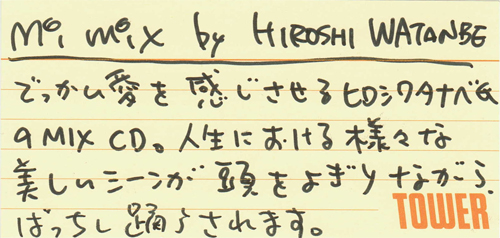 Mei meix by HIROSHI WATANBE
でっかい愛を感じさせるヒロシワタナベ氏
のMIX CD。人生における様々な
美しいシーンが頭をよぎりながら、
ばっちし踊らされます。
TOWER